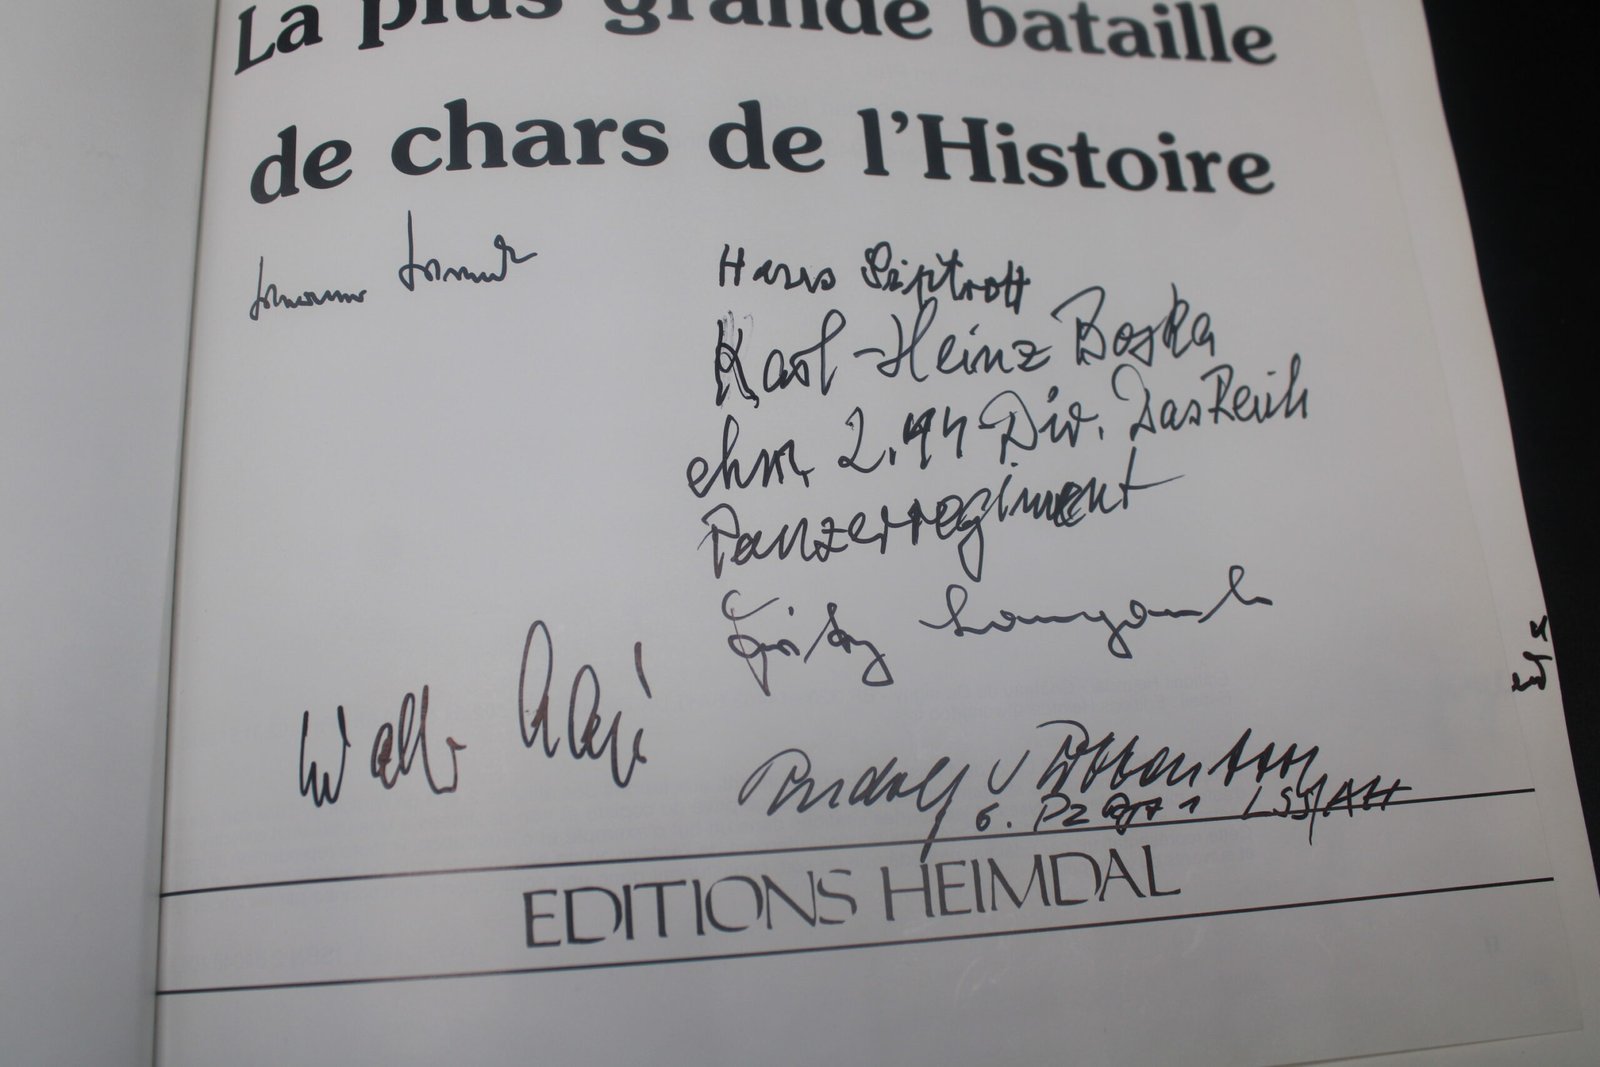 La plus grande bataille
de chars de l'Histoire
Hans Siptrott
Karl-Heinz Boska
ehm 2. SS Div. Das Reich
Panzerregiment
Fritz Langanke
Walter
Rudolf v Ribbentrop
6. Pz Rgt 1 LSSAH
EDITIONS HEIMDAL